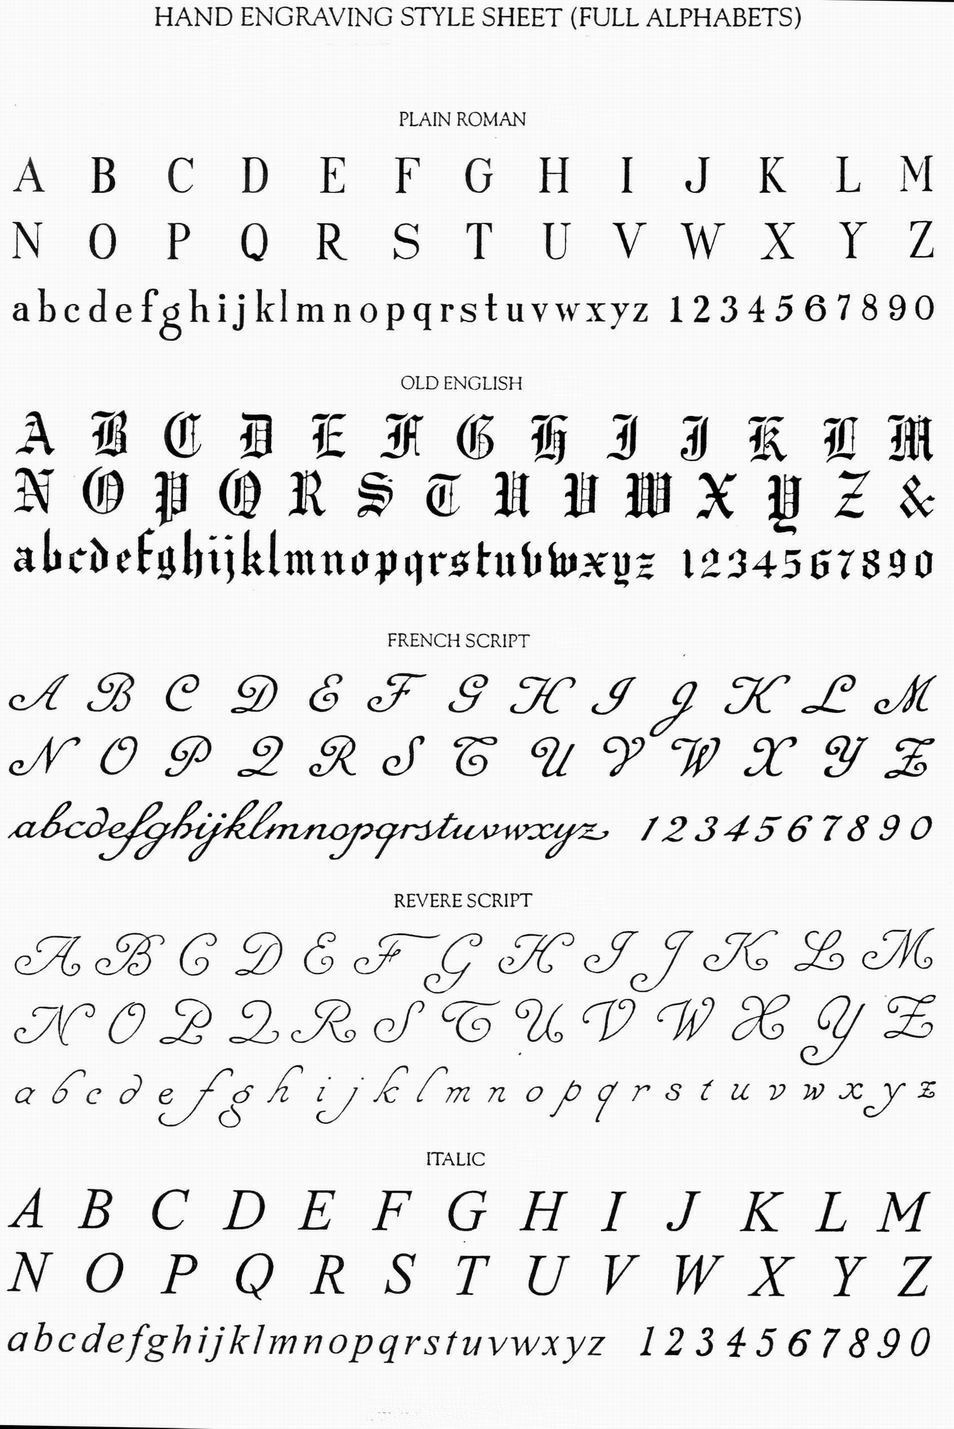 HAND ENGRAVING STYLE SHEET (FULL ALPHABETS)
PLAIN ROMAN
A B C D E F G H I J K L M
N O P Q R S T U V W X Y Z
a b c d e f g h i j k l m n o p q r s t u v w x y z 1 2 3 4 5 6 7 8 9 0
OLD ENGLISH
A B C D E F G H I J K L M
N O P Q R S T U V W X Y Z &
a b c d e f g h i j k l m n o p q r s t u v w x y z 1 2 3 4 5 6 7 8 9 0
FRENCH SCRIPT
A B C D E F G H I J K L M
N O P Q R S T U V W X Y Z
a b c d e f g h i j k l m n o p q r s t u v w x y z 1 2 3 4 5 6 7 8 9 0
REVERE SCRIPT
A B C D E F G H I J K L M
N O P Q R S T U V W X Y Z
a b c d e f g h i j k l m n o p q r s t u v w x y z
ITALIC
A B C D E F G H I J K L M
N O P Q R S T U V W X Y Z
a b c d e f g h i j k l m n o p q r s t u v w x y z 1 2 3 4 5 6 7 8 9 0